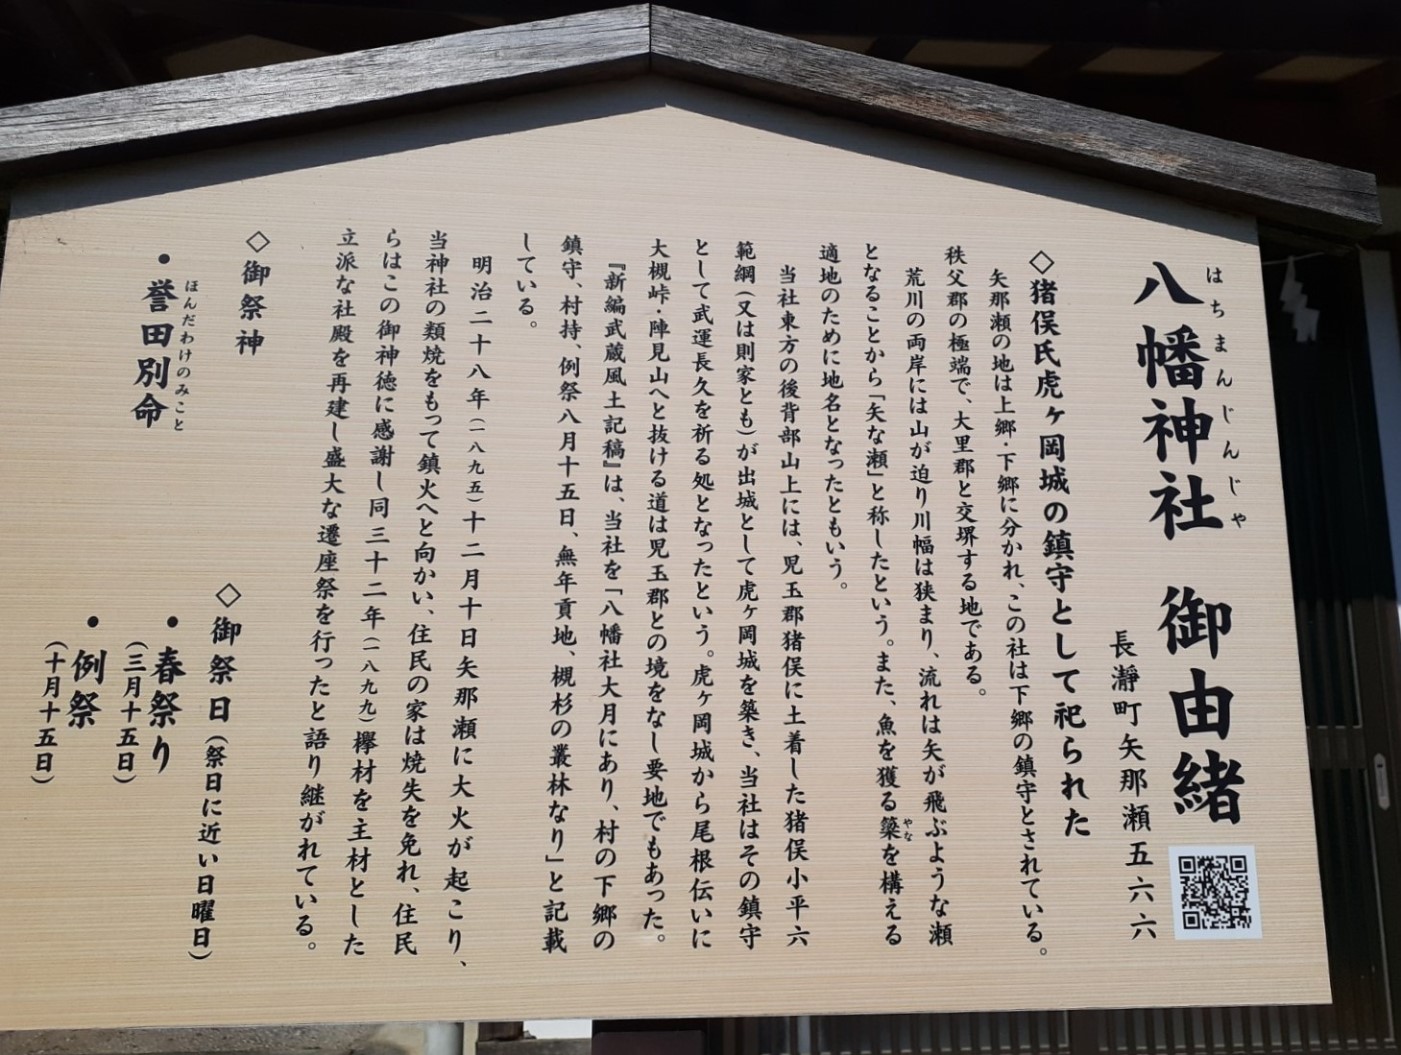 八幡神社　御由緒
はちまんじんじゃ
長瀞町矢那瀬五六六
◇猪俣氏虎ヶ岡城の鎮守として祀られた
矢那瀬の地は上郷・下郷に分かれ、この社は下郷の鎮守とされている。
秩父郡の極端で、大里郡と交堺する地である。
荒川の両岸には山が迫り川幅は狭まり、流れは矢が飛ぶような瀬
となることから「矢な瀬」と称したという。また、魚を獲る簗を構える
やな
適地のために地名となったともいう。
当社東方の後背部山上には、児玉郡猪俣に土着した猪俣小平六
範綱（又は則家とも）が出城として虎ヶ岡城を築き、当社はその鎮守
として武運長久を祈る処となったという。虎ヶ岡城から尾根伝いに
大槻峠・陣見山へと抜ける道は児玉郡との境をなし要地でもあった。
『新編武蔵風土記稿』は、当社を「八幡社大月にあり、村の下郷の
鎮守、村持、例祭八月十五日、無年貢地、槻杉の叢林なり」と記載
している。
明治二十八年（一八九五）十二月十日矢那瀬に大火が起こり、
当神社の類焼をもって鎮火へと向かい、住民の家は焼失を免れ、住民
らはこの御神徳に感謝し同三十二年（一八九九）欅材を主材とした
立派な社殿を再建し盛大な遷座祭を行ったと語り継がれている。
◇御祭神
・誉田別命
ほんだわけのみこと
◇御祭日（祭日に近い日曜日）
・春祭り
（三月十五日）
・例祭
（十月十五日）